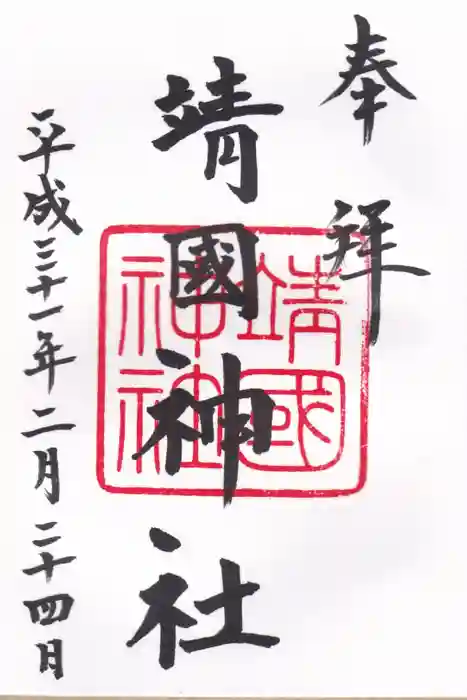 奉拜
靖國神社
靖國神社
平成三十一年二月二十四日